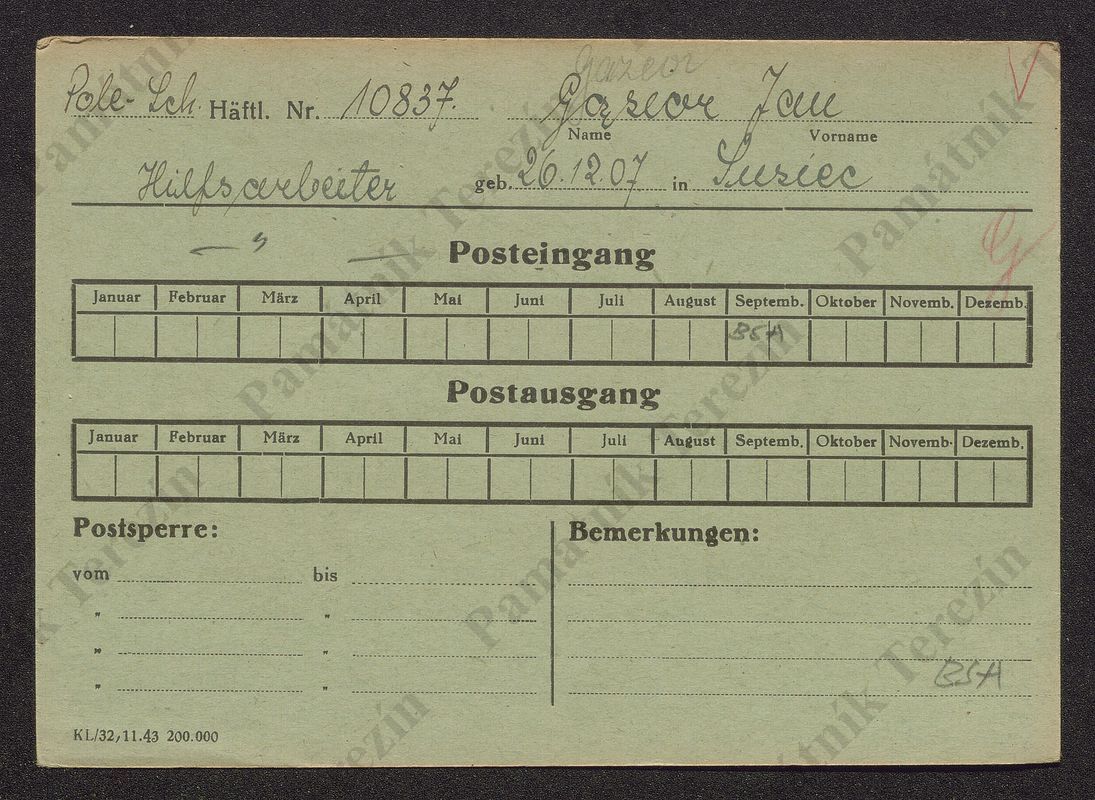 Gazeor
Pole-Sch. Häftl. Nr. 10837. Gąsior Jan
Name Vorname
Hilfsarbeiter geb. 26.12.07 in Susiec
Posteingang
Januar Februar März April Mai Juni Juli August Septemb. Oktober Novemb. Dezemb.
BSA
Postausgang
Januar Februar März April Mai Juni Juli August Septemb. Oktober Novemb. Dezemb.
Postsperre: Bemerkungen:
vom bis
" "
" "
" "
BSA
KL/32, 11.43 200.000
Památník Terezín